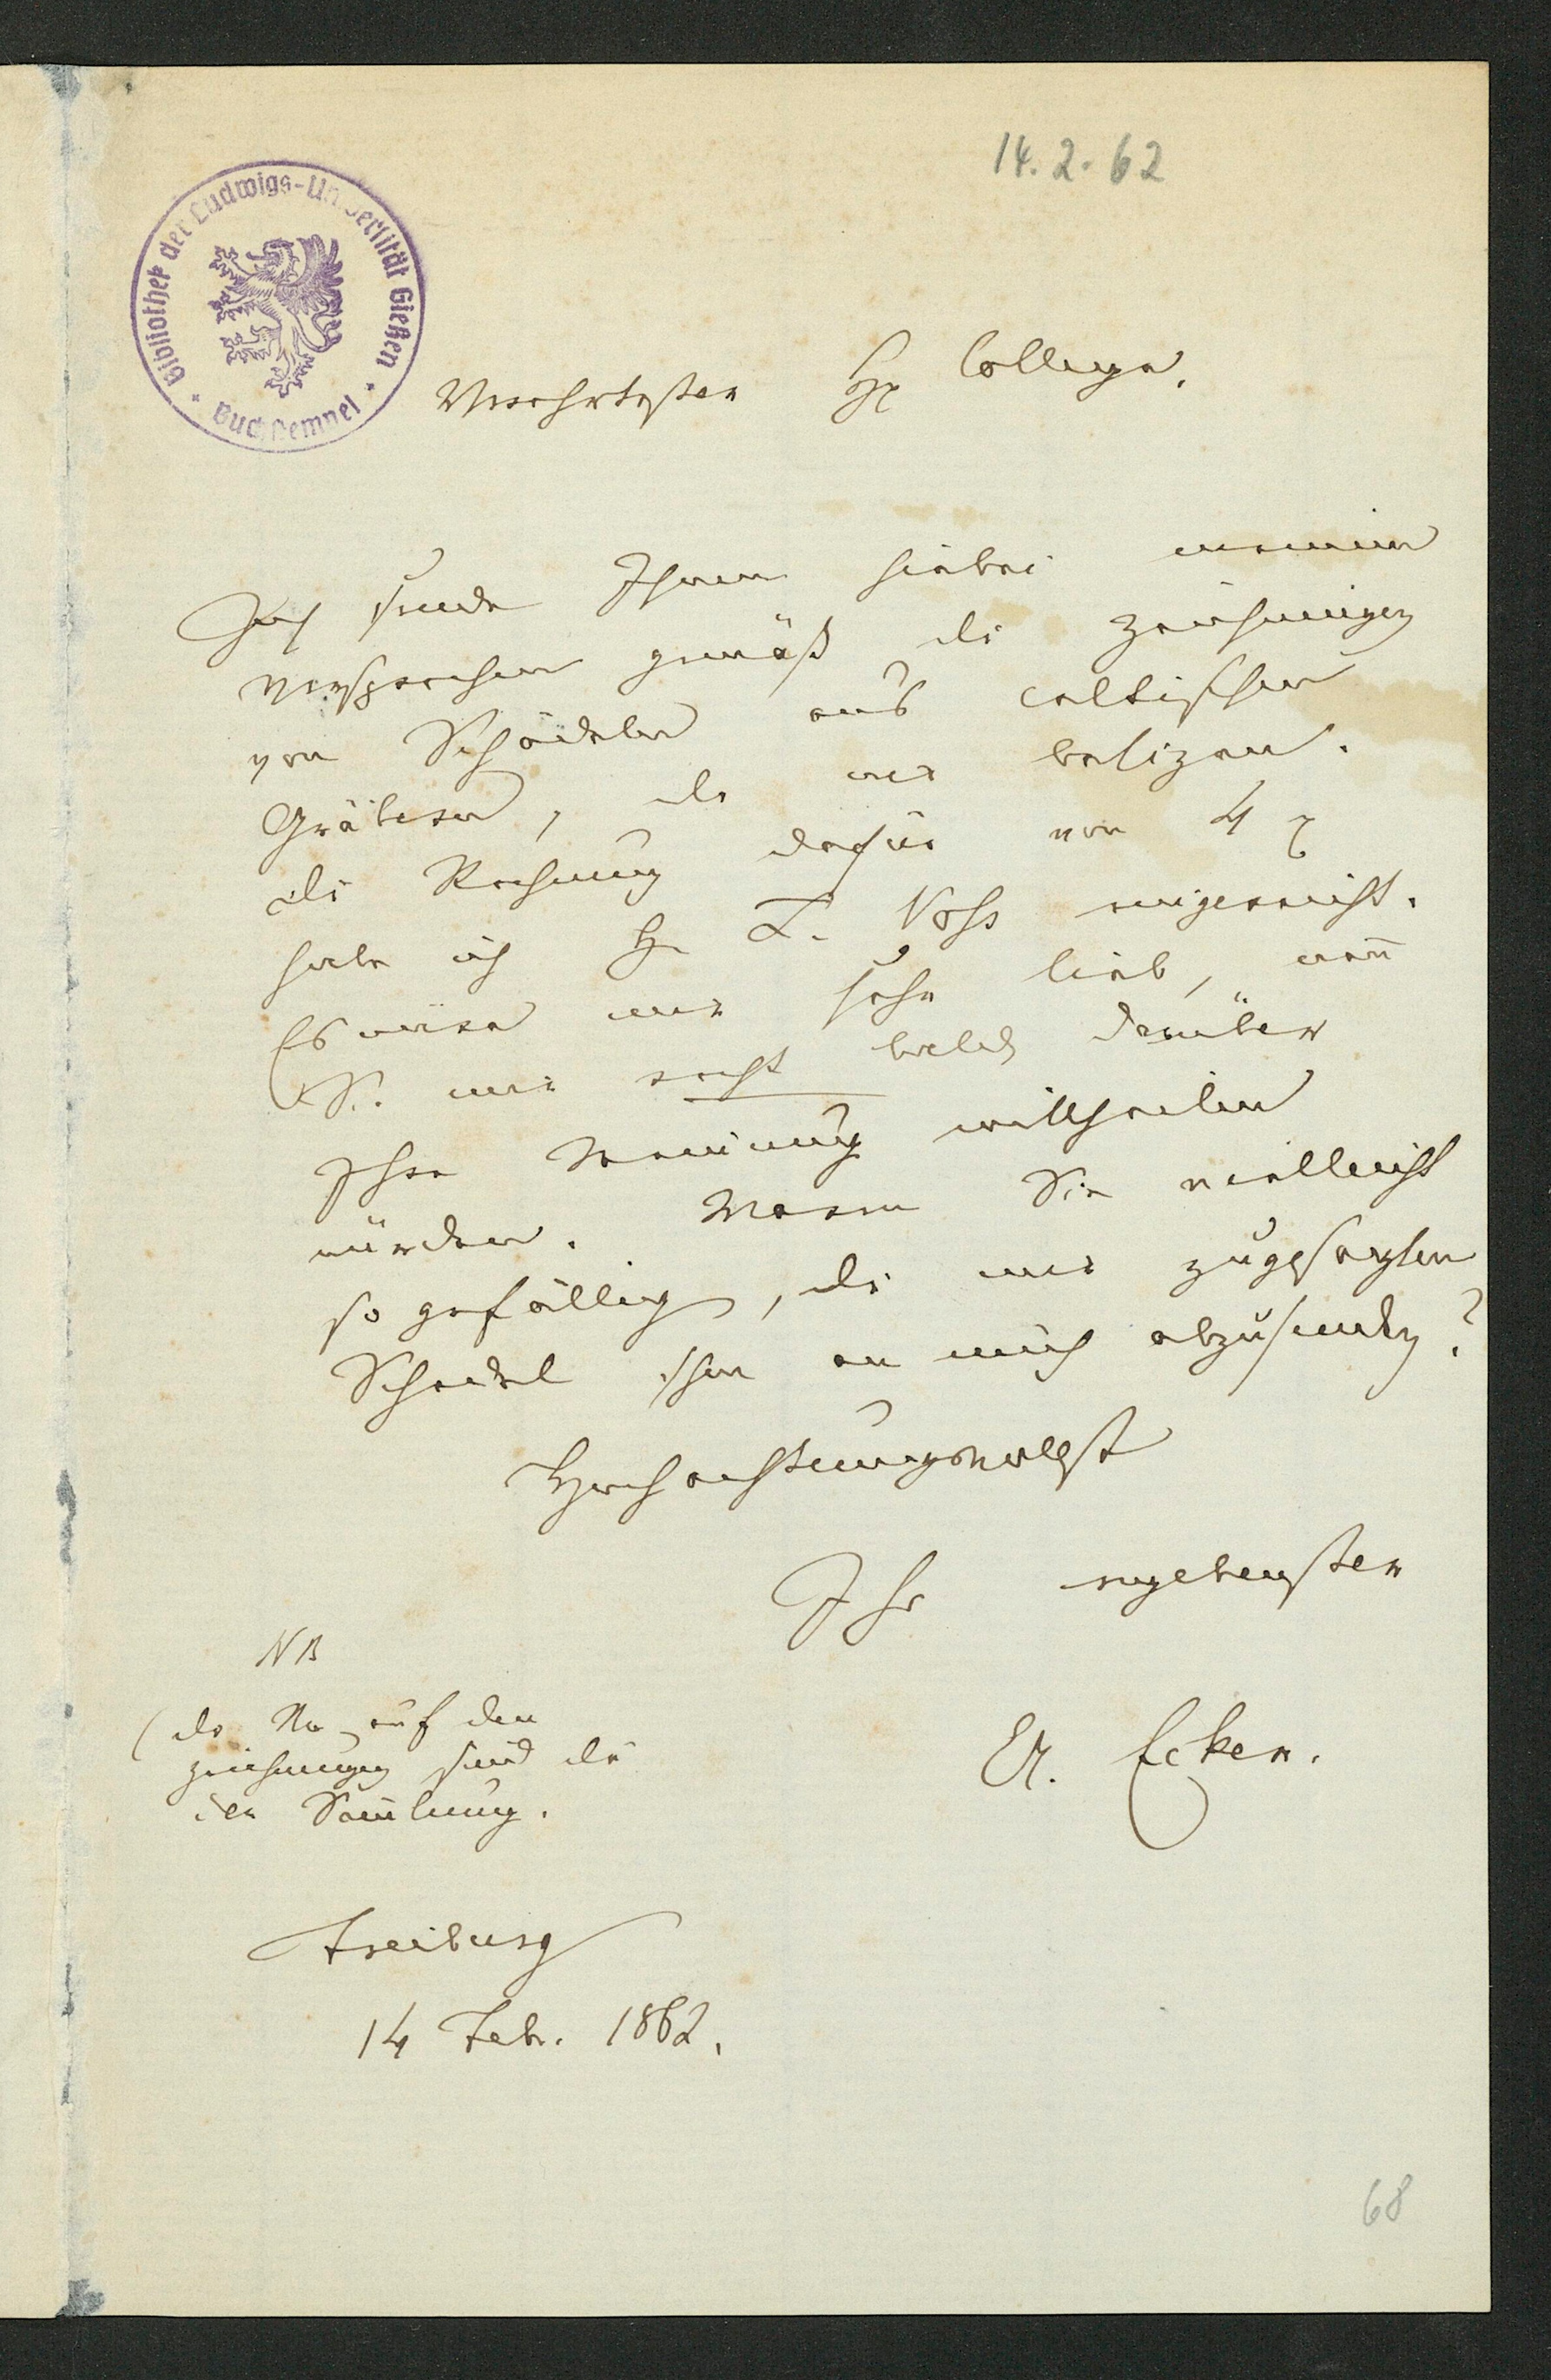 14.2.62
Bibliothek der Ludwigs-Universität Gießen
Buchstempel
Verehrtester Hr College.
Ich sende Ihnen hiebei meinem
Versprechen gemäß die Zeichnungen
von Schädeln aus celtischen
Gräbern, die wir besizen.
die Rechnung dafür von 4
habe ich H L. Voss eingereicht.
Es wäre mir sehr lieb, weñ
S. mir recht bald darüber
Ihre Meinung mittheilen
würden. Waren Sie vielleicht
so gefällig, die mir zugesagten
Schädel schon an mich abzusenden?
Hochachtungsvollst
Ihr ergebenster
A. Ecker.
NB
(die No auf den
Zeichnungen sind die
der Sam̄lung.
Freiburg
14 Feb. 1862.
68